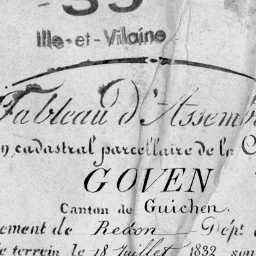 35
Ille-et-Vilaine
Tableau d'Assemb
n cadastral parcellaire de la C
GOVEN
Canton de Guichen.
ement de Redon Dépt.
e terrein le 18 Juillet 1832 son